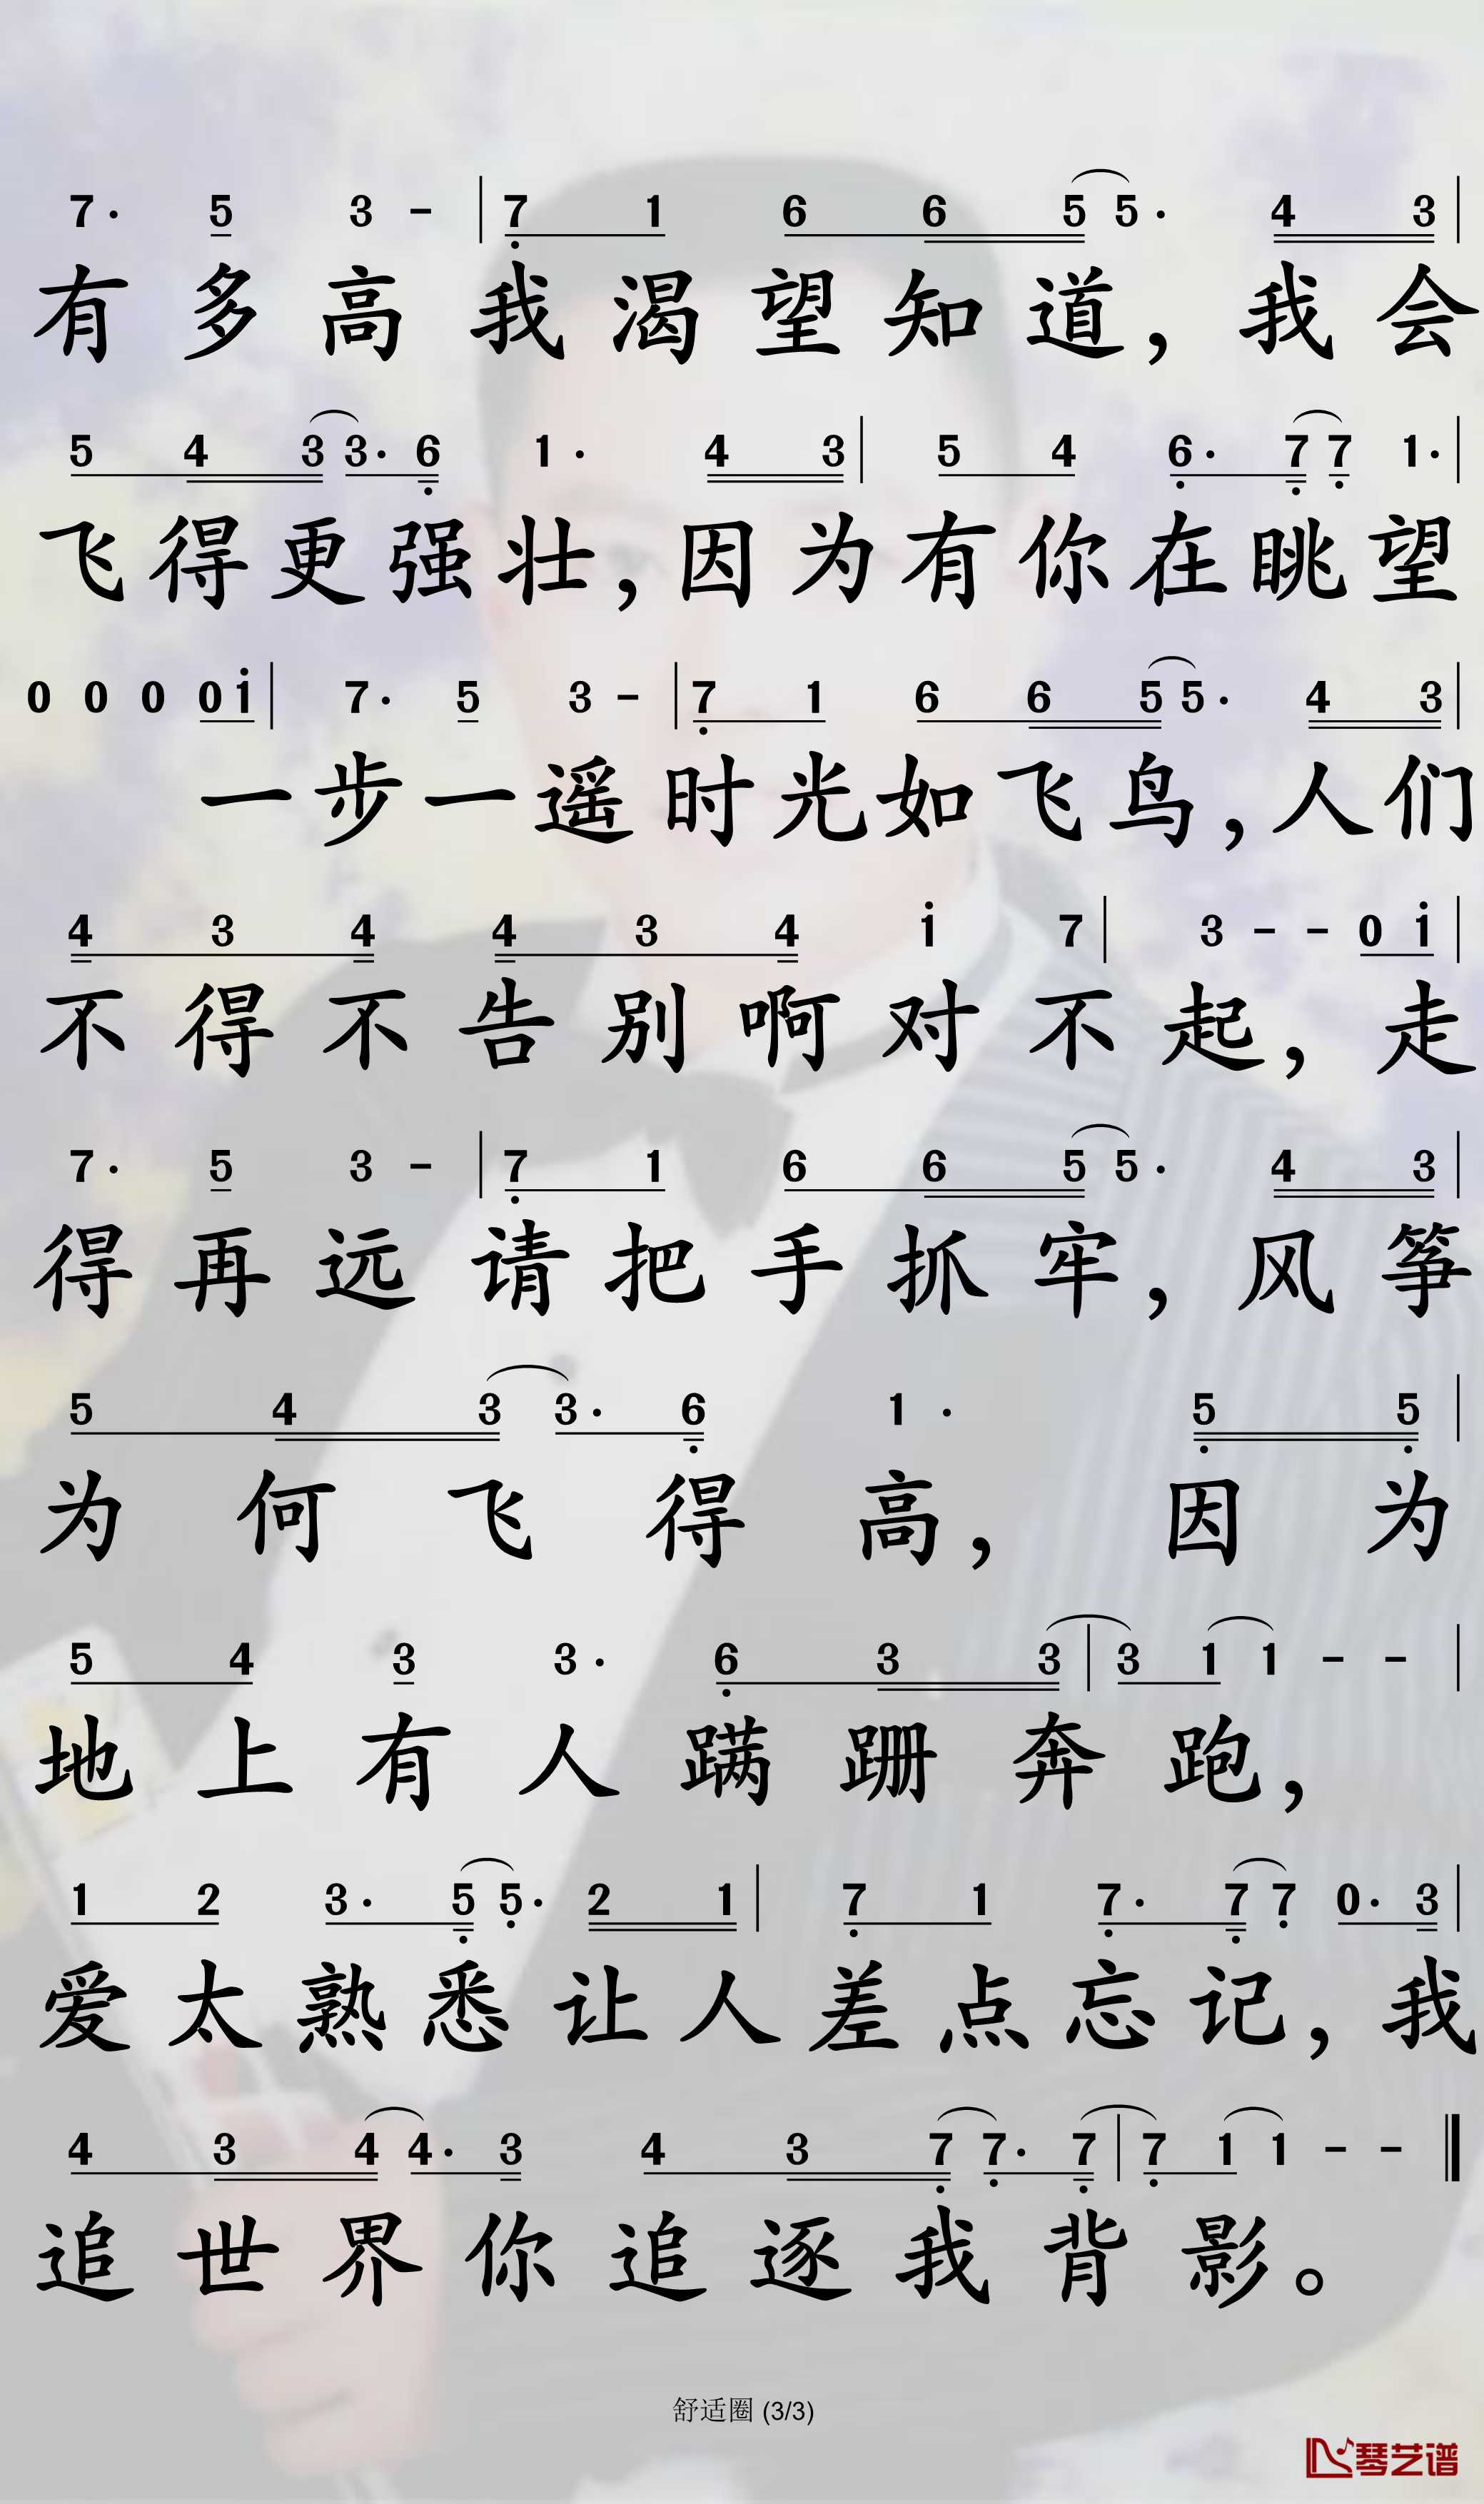 7· 5 3 - | 7 1 6 6 5 5· 4 3 |
有多高我渴望知道，我会
5 4 3 3· 6 1· 4 3 | 5 4 6· 7 7 1· |
飞得更强壮，因为有你在眺望
0 0 0 0 1 | 7· 5 3 - | 7 1 6 6 5 5· 4 3 |
一步一遥时光如飞鸟，人们
4 3 4 4 3 4 1 7 | 3 - - 0 1 |
不得不告别啊对不起，走
7· 5 3 - | 7 1 6 6 5 5· 4 3 |
得再远请把手抓牢，风筝
5 4 3 3· 6 1· 5 5 |
为何飞得高，因为
5 4 3 3· 6 3 3 | 3 1 1 - - |
地上有人蹒跚奔跑，
1 2 3· 5 5· 2 1 | 7 1 7· 7 7 0· 3 |
爱太熟悉让人差点忘记，我
4 3 4 4· 3 4 3 7 7· 7 | 7 1 1 - - ‖
追世界你追逐我背影。
舒适圈 (3/3)
琴艺谱